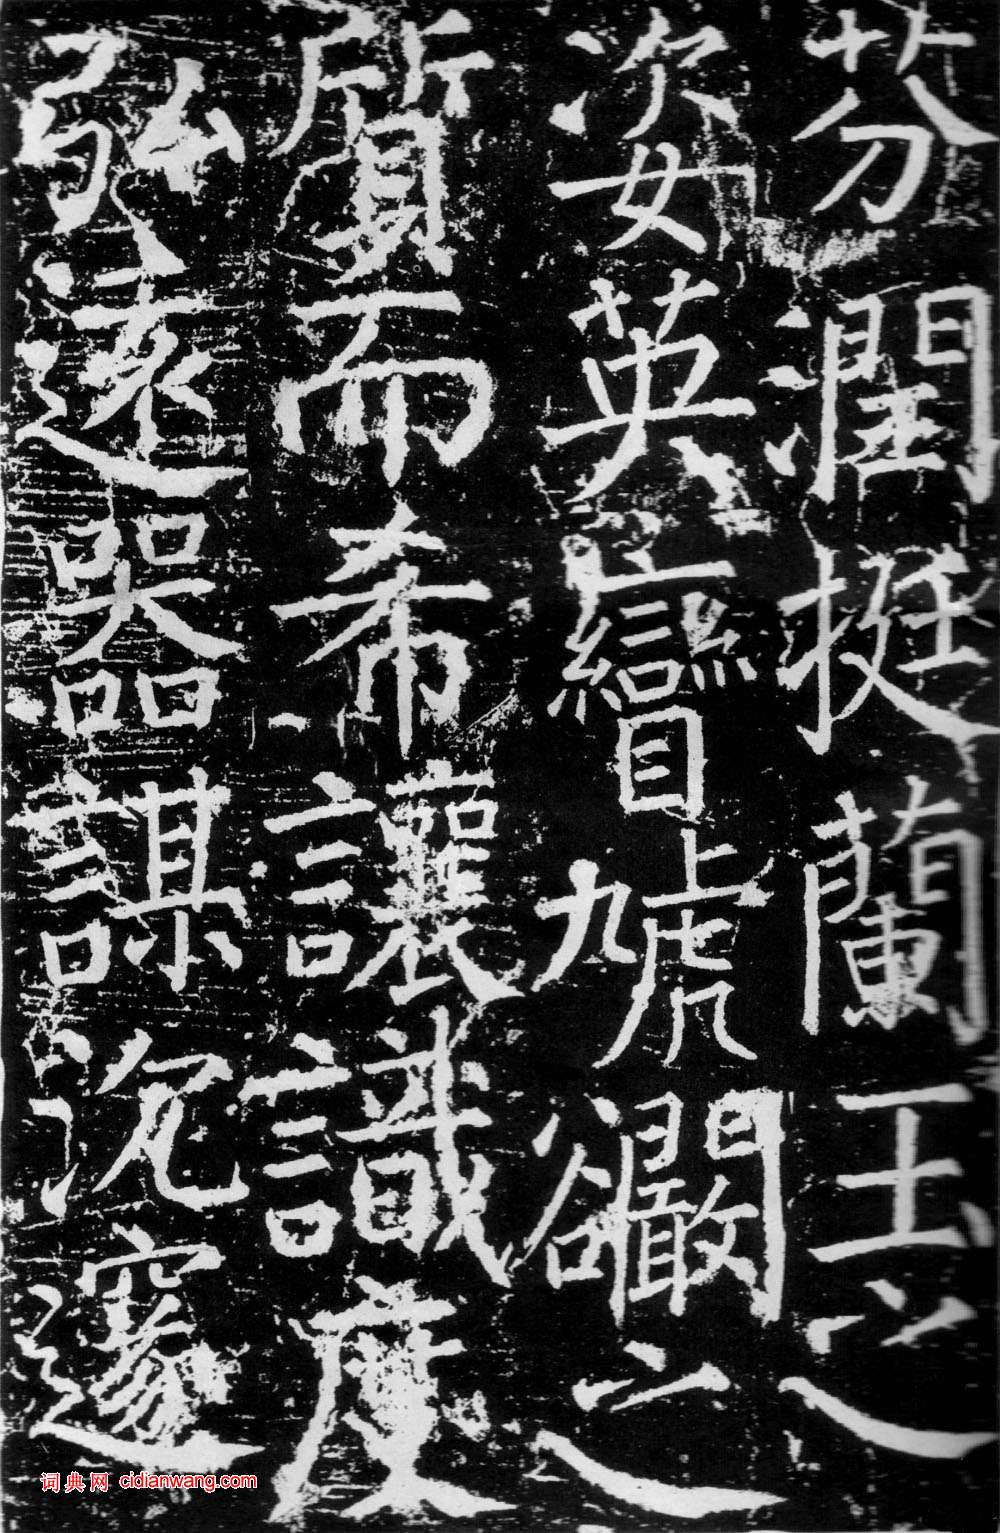 芬潤挺蘭玉之
姿英矕虓之
質而希讓識度
弘遠器謀沉邃
词典网 cidianwang.com